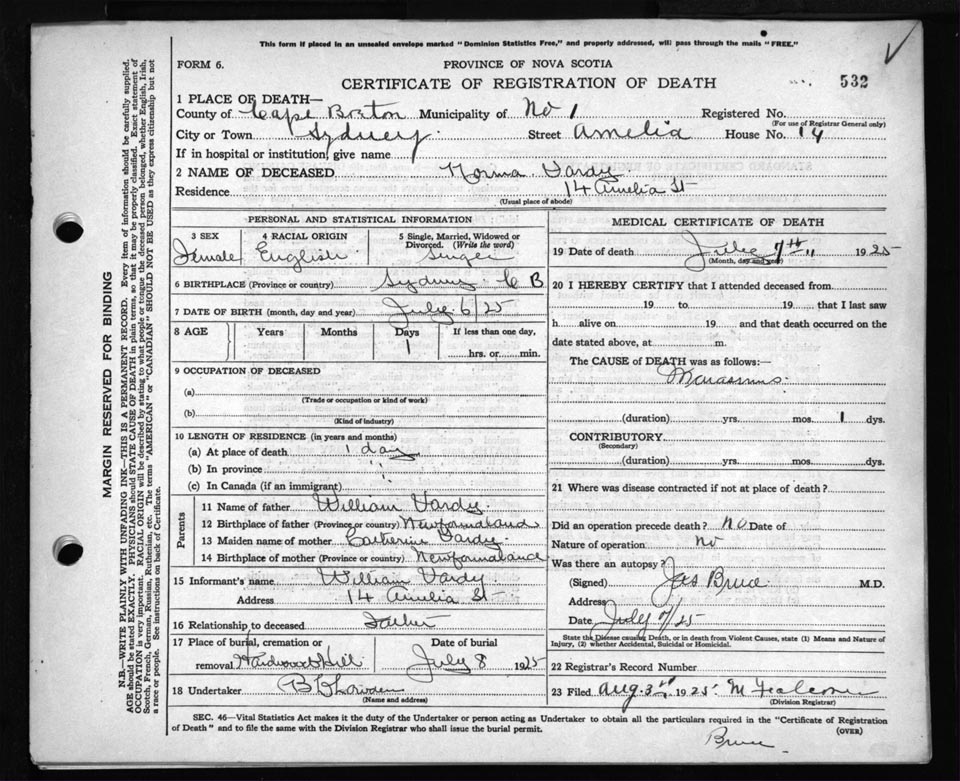 This form if placed in an unsealed envelope marked "Dominion Statistics Free," and properly addressed, will pass through the mails "FREE."
FORM 6.
PROVINCE OF NOVA SCOTIA
CERTIFICATE OF REGISTRATION OF DEATH
532
1 PLACE OF DEATH—
County of Cape Breton Municipality of No 1 Registered No.
(For use of Registrar General only)
City or Town Sydney Street Amelia House No. 14
If in hospital or institution, give name
2 NAME OF DECEASED Norma Vardy
Residence 14 Amelia St
(Usual place of abode)
PERSONAL AND STATISTICAL INFORMATION
3 SEX Female
4 RACIAL ORIGIN English
5 Single, Married, Widowed or Divorced. (Write the word) Singel
6 BIRTHPLACE (Province or country) Sydney C B
7 DATE OF BIRTH (month, day and year) July 6/25
8 AGE Years Months Days 1 If less than one day, hrs. or min.
9 OCCUPATION OF DECEASED
(a)
(Trade or occupation or kind of work)
(b)
(Kind of industry)
10 LENGTH OF RESIDENCE (in years and months)
(a) At place of death 1 day
(b) In province "
(c) In Canada (if an immigrant)
Parents
11 Name of father William Vardy
12 Birthplace of father (Province or country) Newfoundland
13 Maiden name of mother Catherine Vardy
14 Birthplace of mother (Province or country) Newfoundland
15 Informant's name William Vardy
Address 14 Amelia St
16 Relationship to deceased Father
17 Place of burial, cremation or removal Hardwood Hill
Date of burial July 8 1925
18 Undertaker
(Name and address)
MEDICAL CERTIFICATE OF DEATH
19 Date of death July 7th 1925
(Month, day and year)
20 I HEREBY CERTIFY that I attended deceased from
19 to 19 that I last saw
h alive on 19 and that death occurred on the
date stated above, at m.
The CAUSE of DEATH was as follows:—
Marasmus
(duration) yrs. mos. 1 dys.
CONTRIBUTORY
(Secondary)
(duration) yrs. mos. dys.
21 Where was disease contracted if not at place of death?
Did an operation precede death? No Date of
Nature of operation No
Was there an autopsy?
(Signed) Jas Bruce M.D.
Address
Date July 7/25
State the Disease causing Death, or in death from Violent Causes, state (1) Means and Nature of
Injury, (2) whether Accidental, Suicidal or Homicidal.
22 Registrar's Record Number
23 Filed Aug. 3rd 1925
(Division Registrar)
SEC. 46—Vital Statistics Act makes it the duty of the Undertaker or person acting as Undertaker to obtain all the particulars required in the "Certificate of Registration
of Death" and to file the same with the Division Registrar who shall issue the burial permit.
(OVER)
Bruce
MARGIN RESERVED FOR BINDING
N.B.—WRITE PLAINLY WITH UNFADING INK—THIS IS A PERMANENT RECORD. Every item of information should be carefully supplied.
AGE should be stated EXACTLY. PHYSICIANS should STATE CAUSE OF DEATH in plain terms, so that it may be properly classified. Exact statement of
OCCUPATION is very important. RACIAL ORIGIN will be described by stating to what people or tongue the deceased person belonged, whether English, Irish,
Scotch, French, German, Russian, Ruthenian, etc. The terms "AMERICAN" or "CANADIAN" SHOULD NOT BE USED as they express citizenship but not
a race or people. See instructions on back of Certificate.